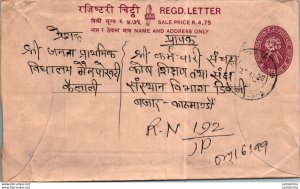 रजिष्टरी चिट्ठी REGD. LETTER
बिक्री मूल्य रु. ४.७५ SALE PRICE R. 4.75
नाम र ठेगाना मात्र NAME AND ADDRESS ONLY
प्रेषक
प्रापक
श्री जनता प्राथमिक
विद्यालय मैनपोखरी
कैलाली
श्री कर्मचारी संचय
कोष शिक्षण तथा संघ
संस्थान विभाग डिल्ली
बजार - काठमाण्डौ
R.N 192
JP